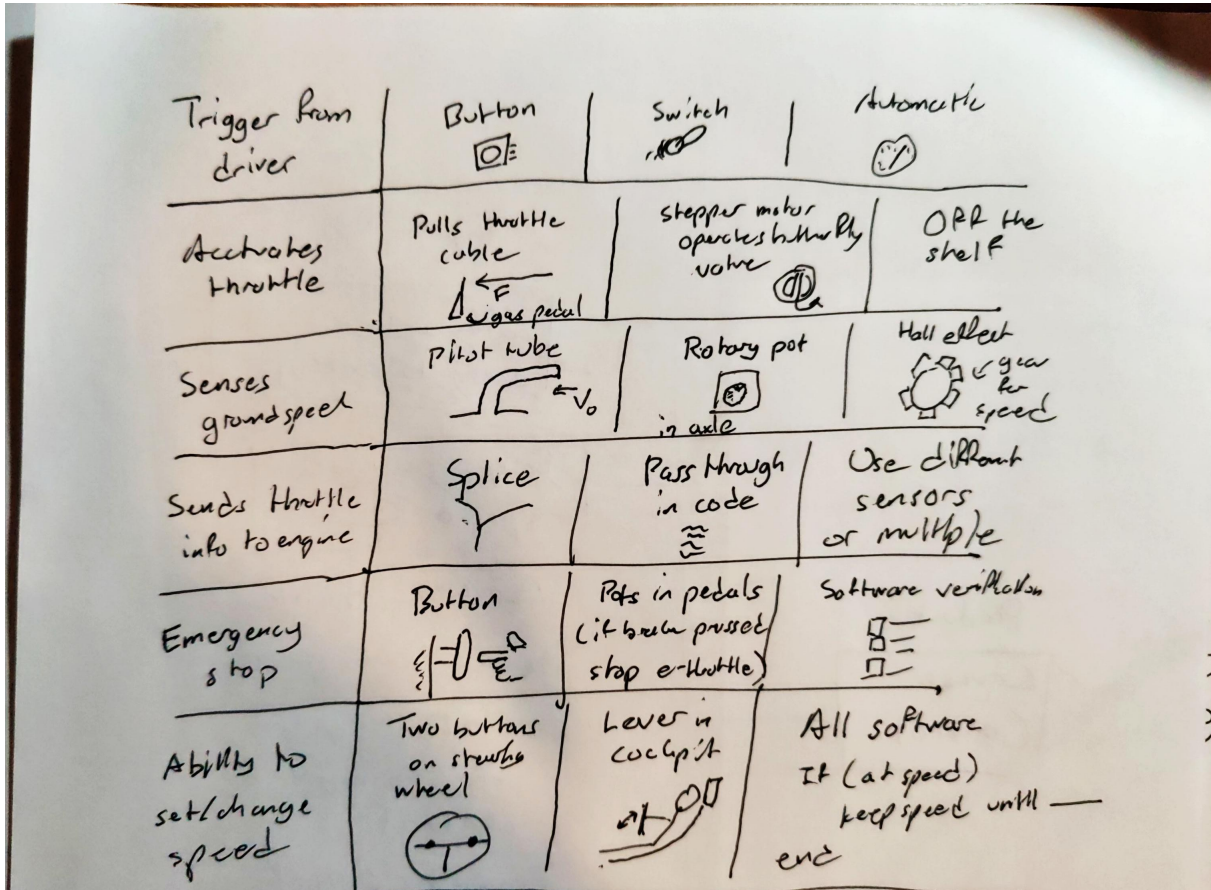 Trigger from
driver
Button
Switch
Automatic
Acctvates
throttle
Pulls throttle
cable
F
gas pedal
stepper motor
operates butterfly
valve
Off the
shelf
Senses
groundspeed
Pitot tube
V₀
Rotary pot
in axle
Hall effect
gear
for
speed
Sends throttle
info to engine
Splice
Pass through
in code
Use different
sensors
or multiple
Emergency
stop
Button
Pots in pedals
(if brake pressed
stop e-throttle)
Software verification
Ability to
set/change
speed
Two buttons
on steering
wheel
Lever in
cockpit
All software
If (at speed)
keep speed until —
end